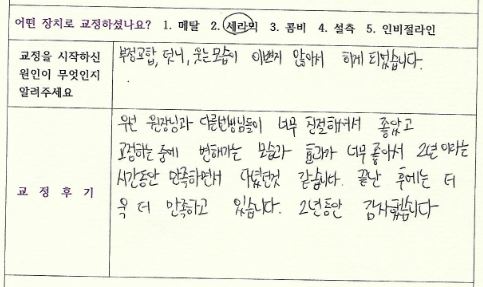 어떤 장치로 교정하셨나요? 1. 메탈 2. 세라믹 3. 콤비 4. 설측 5. 인비절라인
교정을 시작하신
원인이 무엇인지
알려주세요
부정교합, 덧니, 웃는모습이 이쁘지 않아서 하게 되었습니다.
교 정 후 기
우선 원장님과 다른선생님들이 너무 친절해주셔서 좋았고
교정하는 중에 변해가는 모습과 효과가 너무 좋아서 2년이라는
시간동안 만족하면서 다녔던것 같습니다. 끝난 후에는 더
욱 더 만족하고 있습니다. 2년동안 감사했습니다